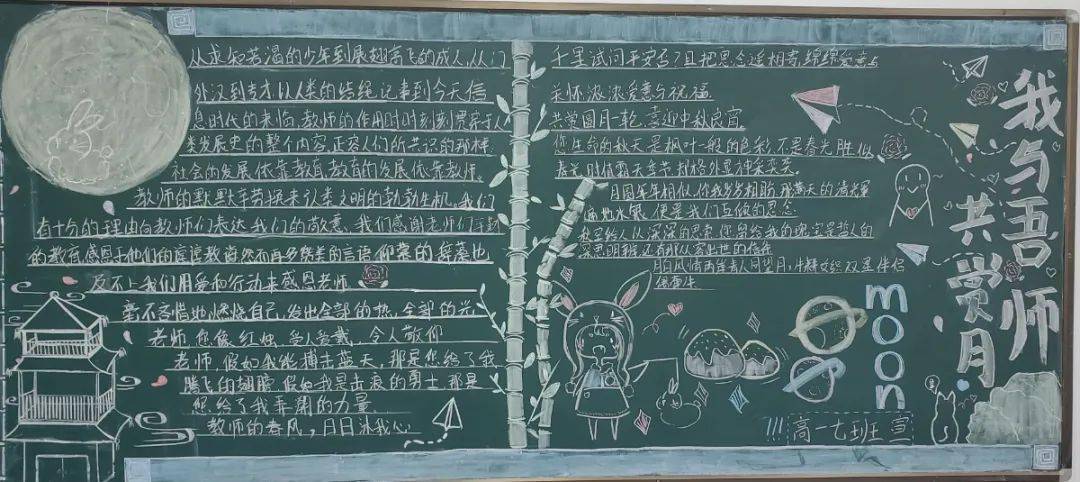 从求知若渴的少年到展翅高飞的成人,从门
外汉到专才从人类的结绳记事到今天信
息时代的来临,教师的作用时时刻刻贯穿于人
类发展史的整个内容,正容人们所共识的那样
社会的发展依靠教育,教育的发展依靠教师。
教师的默默辛劳换来人类文明的勃勃生机。我们
有十分的理由向教师们表达我们的敬意,我们感谢老师们
的教育感恩于他们的谆谆教诲然而再多赞美的言语仰慕的辞藻也
及不上我们用爱和行动来感恩老师
毫不吝惜地燃烧自己,发出全部的热,全部的光
老师,您像红烛,受人爱戴,令人敬仰
老师,假如我能搏击蓝天,那是您给了我
腾飞的翅膀,假如我是击浪的勇士,那是
您给了我弄潮的力量
教师的春风,月日沐我心
千里试问平安否?且把思念遥相寄,绵绵爱意与
关怀,浓浓爱意与祝福
共赏圆月一轮,喜迎中秋良宵
您生命的秋天是枫叶一般的色彩,不是春光胜似
春光,时值霜天季节,却格外显得神采奕奕
月圆年年相似,你我岁岁相盼,那满天的清光
便是我们互倾的思念
我
深思明辨
月白风清雨连去人间望月,牛耕女织双星伴侣
我与语师
共赏月
moon
!!!高一七班 宣